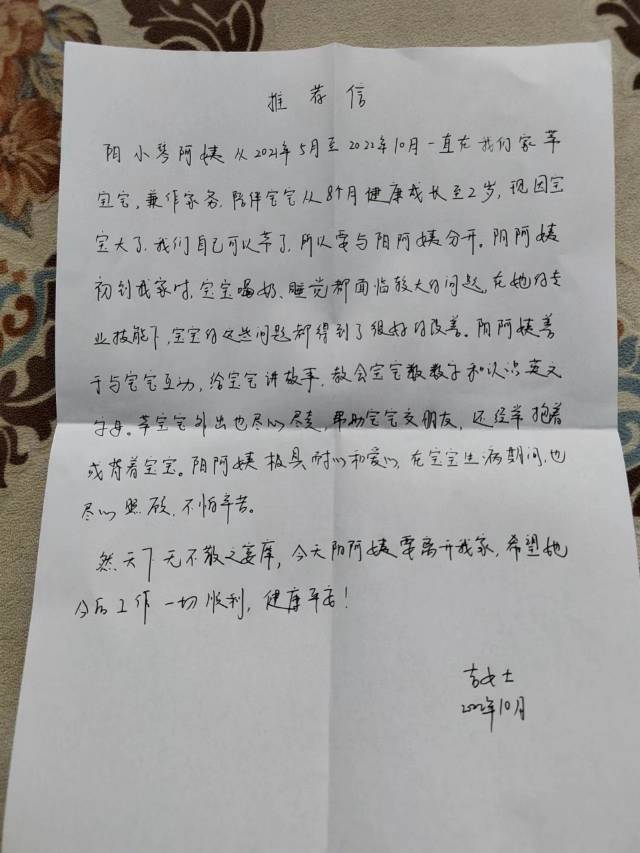 推荐信
阳小琴阿姨从2021年5月至2022年10月一直在我们家带
宝宝,兼作家务。陪伴宝宝从8个月健康成长至2岁,现因宝
宝大了,我们自己可以带了,所以要与阳阿姨分开。阳阿姨
初到我家时,宝宝喝奶、睡觉都面临较大的问题,在她的专
业技能下,宝宝的这些问题都得到了很好的改善。阳阿姨善
于与宝宝互动,给宝宝讲故事,教会宝宝数数字和认识英文
字母。带宝宝外出也尽心尽责,帮助宝宝交朋友,还经常抱着
或背着宝宝。阳阿姨极具耐心和爱心,在宝宝生病期间,也
尽心照顾,不怕辛苦。
然天下无不散之宴席,今天阳阿姨要离开我家,希望她
今后工作一切顺利,健康平安!
女士
2022年10月